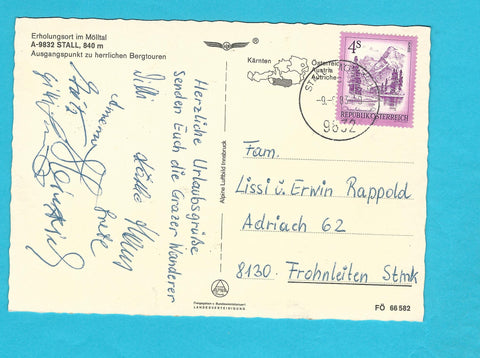 Erholungsort im Mölltal
A-9832 STALL, 840 m
Ausgangspunkt zu herrlichen Bergtouren
Kärnten
Österreich
Austria
Autriche
9832
4S
REPUBLIK ÖSTERREICH
Herzliche Urlaubsgrüße
Senden Euch die Grazer Wanderer
Willi
Alpine Luftbild Innsbruck
Fam.
Lissi u. Erwin Rappold
Adriach 62
8130. Frohnleiten Stmk
Freigegeben v. Bundesministerium f.
LANDESVERTEIDIGUNG
FÖ 66582